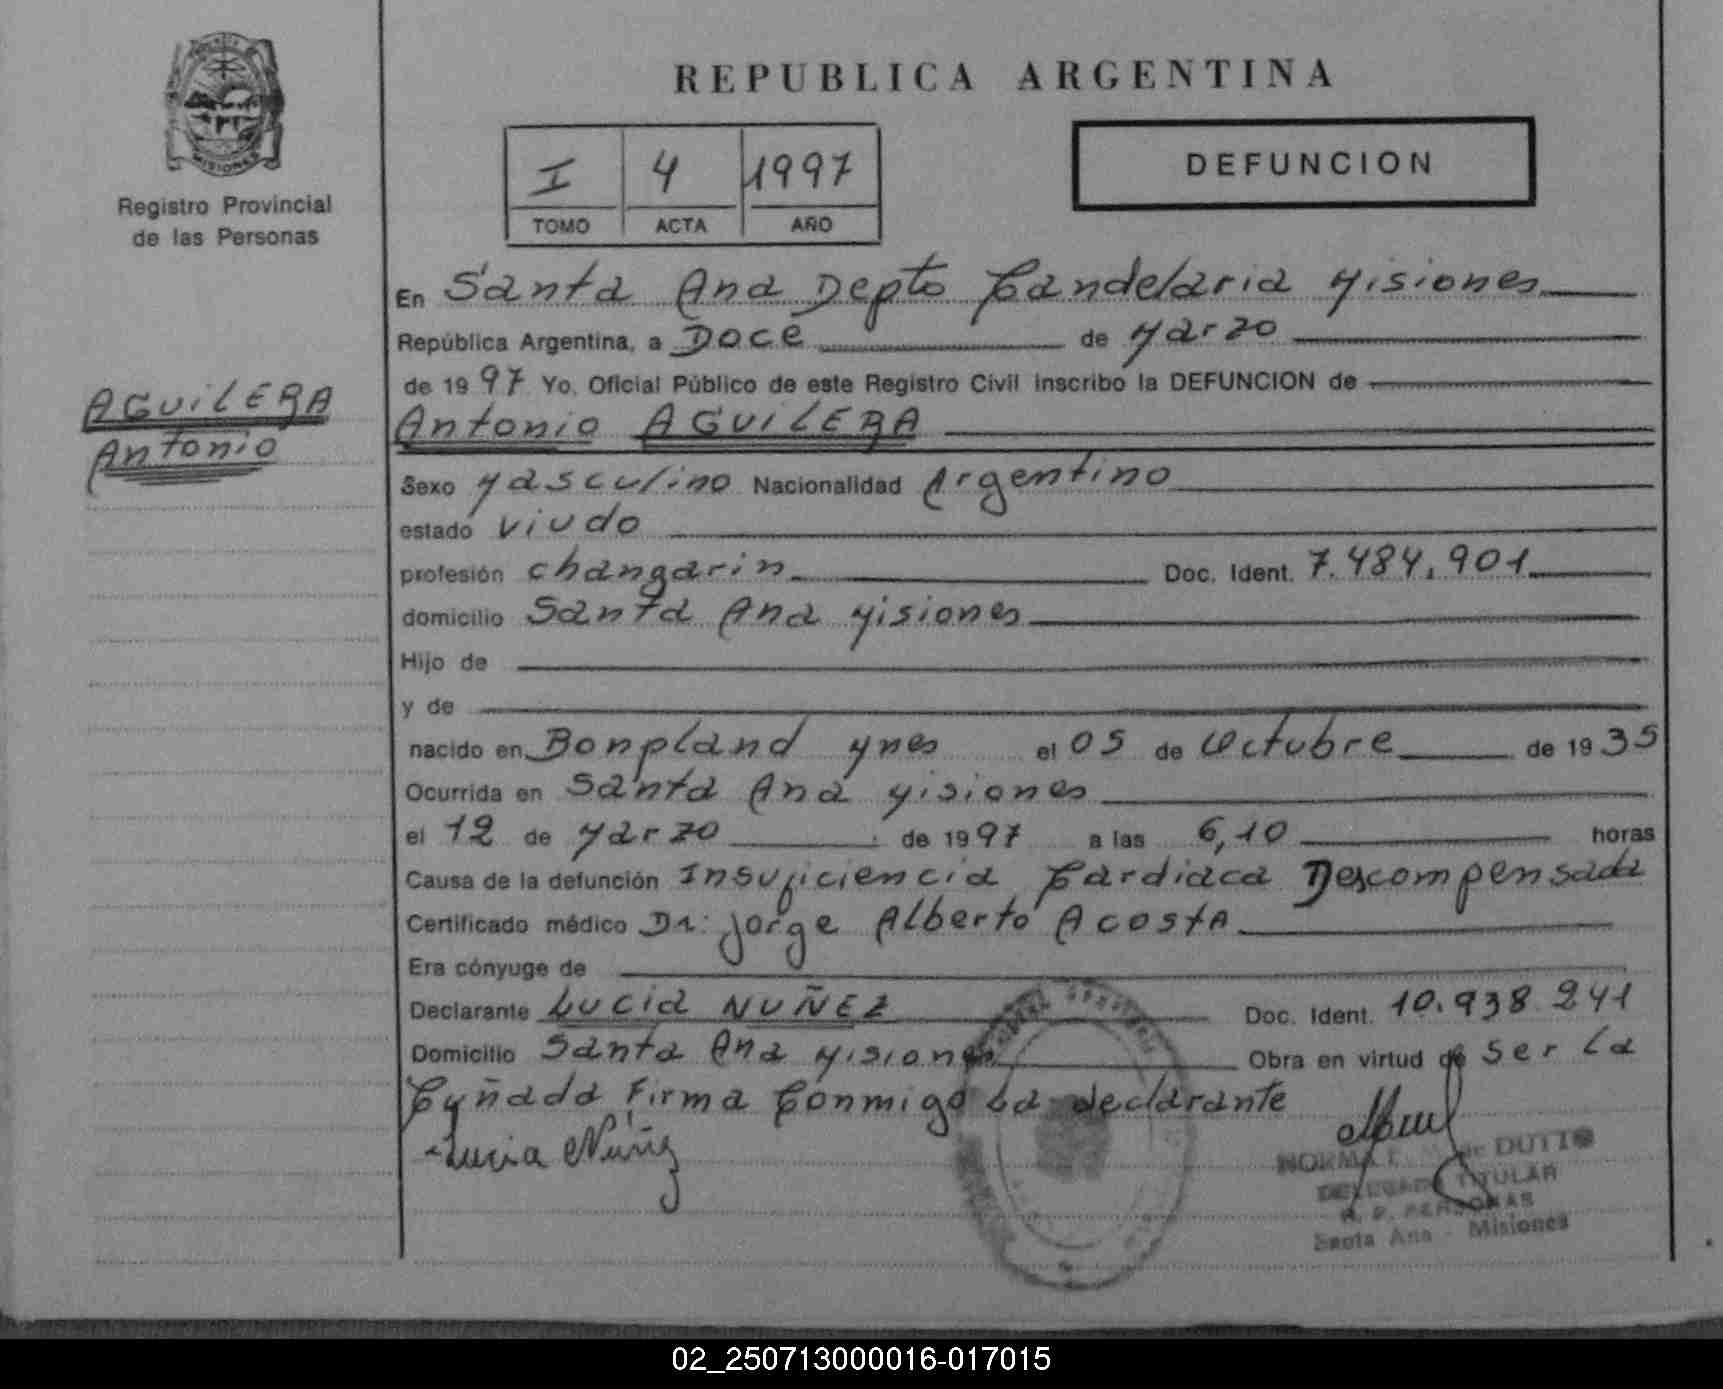 REPUBLICA ARGENTINA
MISIONES
Registro Provincial
de las Personas
I 4 1997
TOMO ACTA AÑO
DEFUNCION
AGUILERA
Antonio
En Santa Ana Depto Candelaria Misiones
República Argentina, a Doce de Marzo
de 1997 Yo, Oficial Público de este Registro Civil inscribo la DEFUNCION de
Antonio AGUILERA
Sexo Masculino Nacionalidad Argentino
estado viudo
profesión changarin Doc. Ident. 7.484,901
domicilio Santa Ana Misiones
Hijo de
y de
nacido en Bonpland Mnes el 05 de Octubre de 1935
Ocurrida en Santa Ana Misiones
el 12 de Marzo de 1997 a las 6,10 horas
Causa de la defunción Insuficiencia Cardiaca Descompensada
Certificado médico Dr: Jorge Alberto Acosta
Era cónyuge de
Declarante Lucia NUÑEZ Doc. Ident. 10.938.241
Domicilio Santa Ana Misiones Obra en virtud de ser la
Cuñada Firma Conmigo La declarante
Lucia Núñez
NORMA de DUTTO
DELEGADA TITULAR
R. P. PERSONAS
Santa Ana - Misiones
02_250713000016-017015